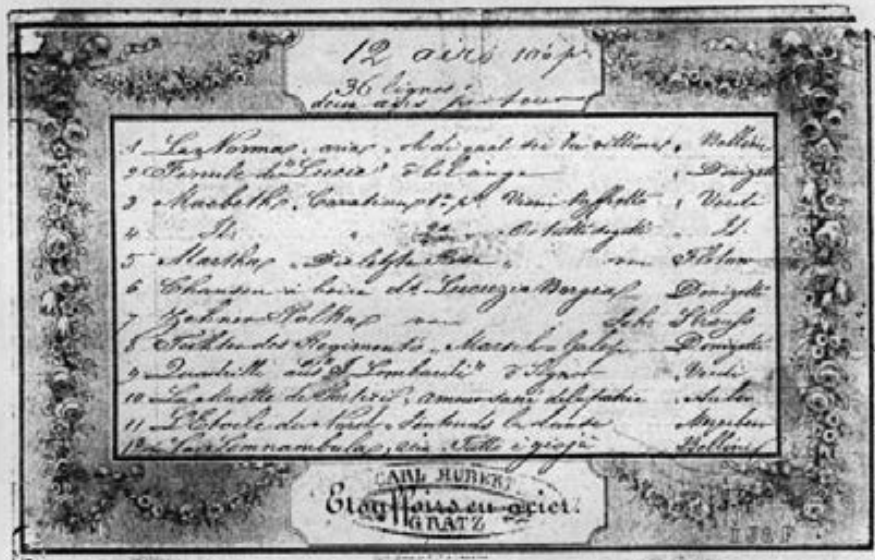 12 airs
36 lignes
deux airs par tour
1 La Norma, aria, Bellini
2 Finale de "Lucia" o bel ange Donizetti
3 Macbeth, Cavatina 1e pt Vieni t'affretta Verdi
4 Id. 2a Or tutti sorgete Id.
5 Martha, Die letzte Rose, von Flotow
6 Chanson à boire de Lucrezia Borgia Donizetti
7 Polka von Joh. Strauss
8 Tochter des Regiments, Marsch Donizetti
9 Quadrille aus "I Lombardi" o Signor Verdi
10 La Muette de Portici, amour sacré de la patrie Auber
11 L'Etoile du Nord, la danse Meyerbeer
12 La Sonnambula, aria Tutto è gioja Bellini
CARL HUBERT
Etouffoirs en acier.
GRATZ